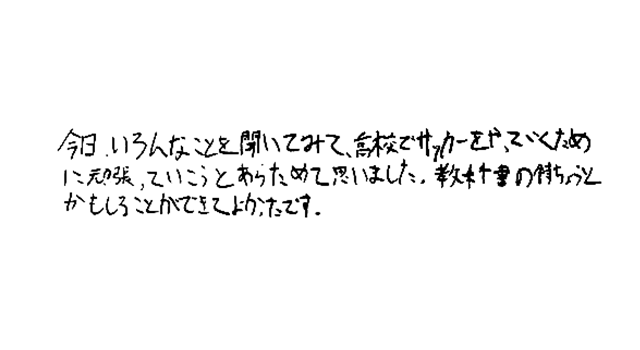 今日、いろんなことを聞いてみて、高校でサッカーをやっていくため
に頑張っていこうとあらためて思いました。教科書の
かもしることができてよかったです。